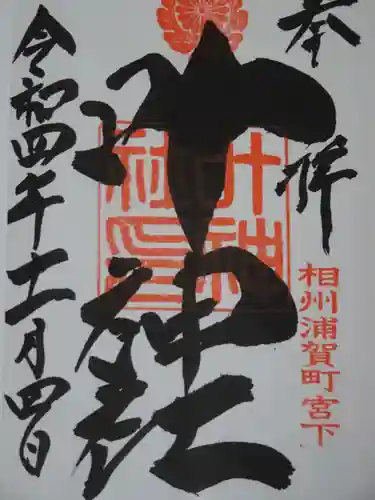 奉拝
相州浦賀町宮下
叶神社
叶神社印
令和四年十二月四日